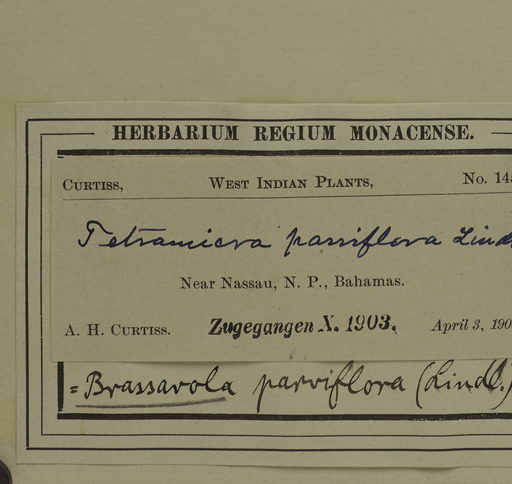 HERBARIUM REGIUM MONACENSE.
CURTISS, WEST INDIAN PLANTS, No. 145
Tetramicra parviflora Lindl.
Near Nassau, N. P., Bahamas.
A. H. CURTISS. Zugegangen X. 1903. April 3, 190
= Brassavola parviflora (Lindl.)